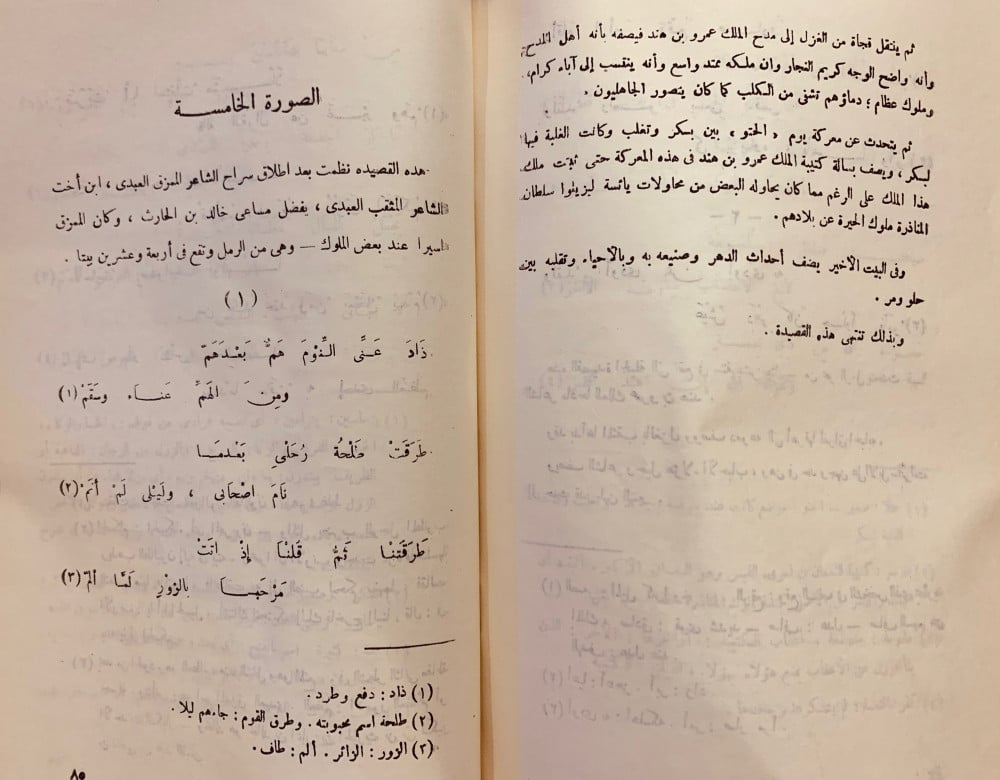 ثم ينتقل فجأة من الغزل إلى مدح الملك عمرو بن هند فيصفه بأنه أهل المدح،
وأنه واضح الوجه كريم النجار وان ملكه ممتد واسع وأنه ينتسب إلى آباء كرام،
وملوك عظام ؛ دماؤهم تشفى من الكلب كما كان يتصور الجاهليون .
ثم يتحدث عن معركة يوم « الحنو » بين بكر وتغلب وكانت الغلبة فيها
لبكر ، ويصف بسالة كتيبة الملك عمرو بن هند فى هذه المعركة حتى ثبت ملك
هذا الملك على الرغم مما كان يحاوله البعض من محاولات يائسة ليزيلوا سلطان
المناذرة ملوك الحيرة عن بلادهم .
وفى البيت الأخير يصف أحداث الدهر وصنيعه به وبالأحياء وتقلبه بين
حلو ومر .
وبذلك تنتهى هذه القصيدة .
الصورة الخامسة
هذه القصيده نظمت بعد اطلاق سراح الشاعر الممزق العبدى ، ابن أخت
الشاعر المثقب العبدى ، بفضل مساعى خالد بن الحارث ، وكان الممزق
اسيرا عند بعض الملوك — وهى من الرمل وتقع فى أربعة وعشرين بيتا .
( ١ )
ذَادَ عَنِّى النَّوْمَ هَمٌّ بَعْدَهَمّ
ومِنَ الهَمِّ عَناء وسَقَمْ (١)
طَرَقَتْ طَلْحَةُ رَحْلِي بَعْدمَا
نَامَ اصْحَابى ، ولَيْلى لَمْ أنَمْ (٢)
طَرَقَتْنا ثُمَّ قَلنْا إذْ اتَتْ
مَرْحَبا بالزَوْرِ لَمَّا ألَمّ (٣)
(١) ذاد : دفع وطرد .
(٢) طلحة اسم محبوبته . وطرق القوم : جاءهم ليلا .
(٣) الزور : الزائر . ألم : طاف .
٨٥